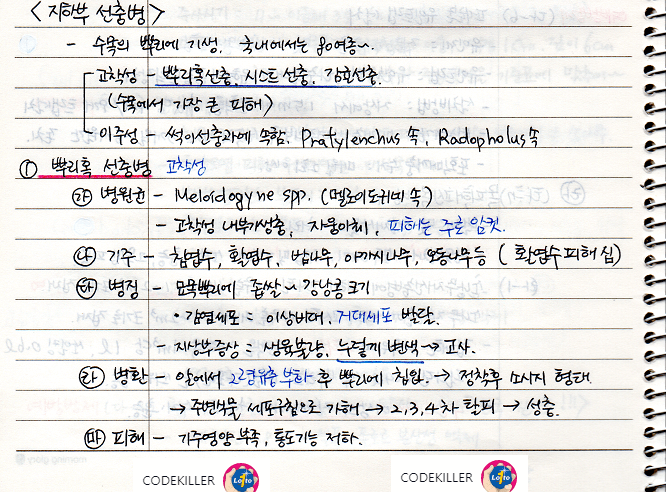 < 지하부 선충병 >
- 수목의 뿌리에 기생. 국내에서는 80여종~.
고착성 - 뿌리혹선충, 시스트 선충, 감귤선충.
(수목에서 가장 큰 피해)
이주성 - 썩이선충과에 속함. Pratylenchus 속, Radopholus 속
① 뿌리혹 선충병 고착성
㉮ 병원균 - Meloidogyne spp. (멜로이도귀네 속)
- 고착성 내부기생충, 자웅이형, 피해는 주로 암컷.
㉯ 기주 - 침엽수, 활엽수, 밤나무, 아까시나무, 오동나무 등 ( 활엽수 피해 심)
㉰ 병징 - 묘목뿌리에 좁쌀 ~ 강낭콩 크기
• 감염세포 = 이상비대, 거대세포 발달.
- 지상부증상 = 생육불량, 누렇게 변색 → 고사.
㉱ 병환 - 알에서 2령유충 부화 후 뿌리에 침입. → 정착후 소시지 형태.
→ 주변식물 세포 구침으로 가해 → 2, 3, 4차 탈피 → 성충.
㉲ 피해 - 기주영양 부족, 통도기능 저하.
CODEKILLER Lotto CODEKILLER Lotto